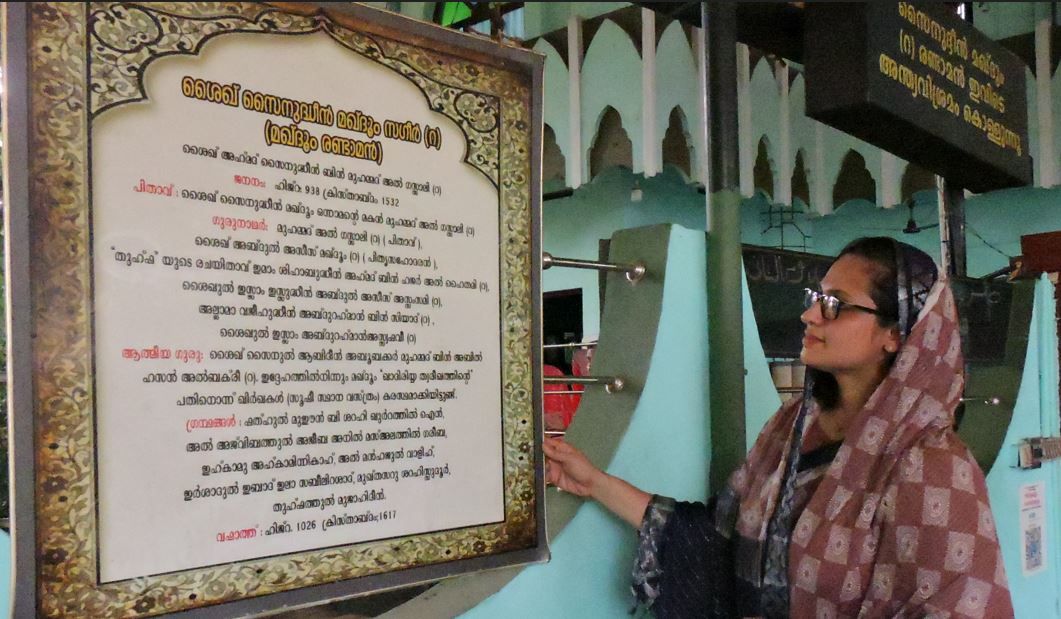 ശൈഖ് സൈനുദ്ധീൻ മഖ്ദൂം സഗീർ (റ)
(മഖ്ദൂം രണ്ടാമൻ)
ശൈഖ് അഹ്മദ് സൈനുദ്ധീൻ ബിൻ മുഹമ്മദ് അൽ ഗസ്സാലി (റ)
ജനനം: ഹിജ്റ: 938 (ക്രിസ്താബ്ദം 1532
പിതാവ് : ശൈഖ് സൈനുദ്ധീൻ മഖ്ദൂം ഒന്നാമന്റെ മകൻ മുഹമ്മദ് അൽ ഗസ്സാലി (റ)
ഗുരുനാഥർ: മുഹമ്മദ് അൽ ഗസ്സാലി (റ) ( പിതാവ് ),
ശൈഖ് അബ്ദുൽ അസീസ് മഖ്ദൂം (റ) ( പിതൃസഹോദരൻ ),
"തുഹ്ഫ" യുടെ രചയിതാവ് ഇമാം ശിഹാബുദ്ധീൻ അഹ്മദ് ബിൻ ഹജർ അൽ ഹൈതമി (റ),
ശൈഖുൽ ഇസ്ലാം ഇസ്സുദ്ധീൻ അബ്ദുൽ അസീസ് അസ്സംസമി (റ),
അല്ലാമാ വജീഹുദ്ധീൻ അബ്ദുറഹ്മാൻ ബിൻ സിയാദ് (റ) ,
ശൈഖുൽ ഇസ്ലാം അബ്ദുറഹ്മാൻഅസ്സഫവീ (റ)
ആത്മീയ ഗുരു: ശൈഖ് സൈനുൽ ആബിദീൻ അബൂബക്കർ മുഹമ്മദ് ബിൻ അബിൽ
ഹസൻ അൽബക്രീ (റ). ഇദ്ദേഹത്തിൽനിന്നും മഖ്ദൂം "ഖാദിരിയ്യ ത്വരീഖത്തിന്റെ"
പതിനൊന്ന് ഖിർഖകൾ (സൂഫീ സ്ഥാന വസ്ത്രം) കരസ്ഥമാക്കിയിട്ടുണ്ട്.
ഗ്രന്ഥങ്ങൾ : ഫത്ഹുൽ മുഈൻ ബി ശറഹി ഖുർറത്തിൽ ഐൻ,
അൽ അജ്വിബത്തുൽ അജീബ അനിൽ മസ്അലത്തിൽ ഗരീബ,
ഇഹ്കാമു അഹ്കാമിന്നികാഹ്, അൽ മൻഹജുൽ വാളിഹ്,
ഇർശാദുൽ ഇബാദ് ഇലാ സബീലിറശാദ്, മുഖ്തസറു ശറഹിസ്സുദൂർ,
തുഹ്ഫത്തുൽ മുജാഹിദീൻ.
വഫാത്ത് : ഹിജ്റ. 1026 (ക്രിസ്താബ്ദം;1617
സൈനുദ്ദീൻ മഖ്ദൂം
(റ) രണ്ടാമൻ ഇവിടെ
അന്ത്യവിശ്രമം കൊള്ളുന്നു